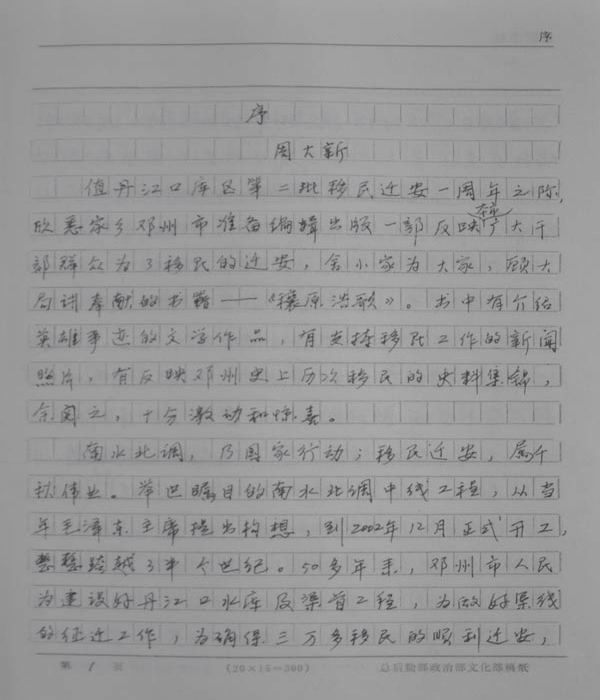 序
序
周大新
值丹江口库区第二批移民迁安一周年之际,
欣悉家乡邓州市准备编辑出版一部反映在广大干
部群众为了移民的迁安,舍小家为大家,顾大
局讲奉献的书籍——《穰原浩歌》。书中有介绍
英雄事迹的文学作品,有支持移民工作的新闻
照片,有反映邓州史上历次移民的史料集锦,
余阅之,十分激动和惊喜。
南水北调,乃国家行动;移民迁安,属千
秋伟业。举世瞩目的南水北调中线工程,从当
年毛泽东主席提出构想,到2002年12月正式开工,
整整跨越了半个世纪。50多年来,邓州市人民
为建设好丹江口水库及渠首工程,为做好渠线
的征迁工作,为确保三万多移民的顺利迁安,
第 1 页 (20×15=300) 总后勤部政治部文化部稿纸